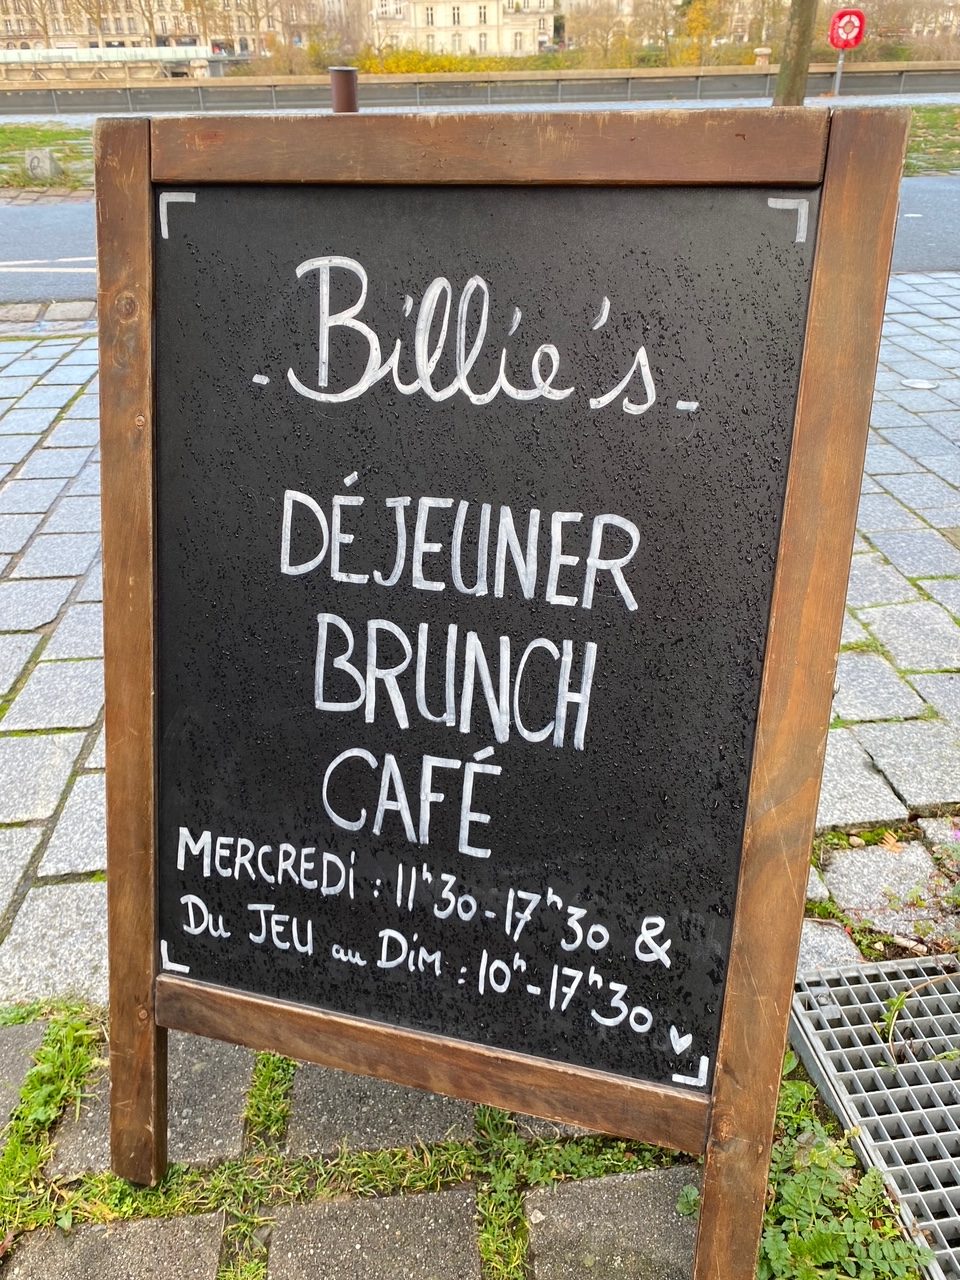 - Billie's -
DÉJEUNER
BRUNCH
CAFÉ
MERCREDI : 11h30 - 17h30 &
Du JEU au DiM : 10h - 17h30 ♥